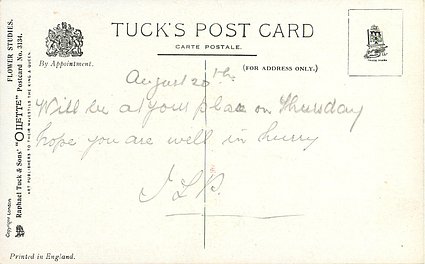 TUCK'S POST CARD
CARTE POSTALE.
By Appointment.
(FOR ADDRESS ONLY.)
August 20th
Will be at your place on Thursday
hope you are well in hurry
FLOWER STUDIES.
Raphael Tuck & Sons' "OILETTE" Postcard No. 3134.
ART PUBLISHERS TO THEIR MAJESTIES THE KING & QUEEN.
Copyright London
Printed in England.